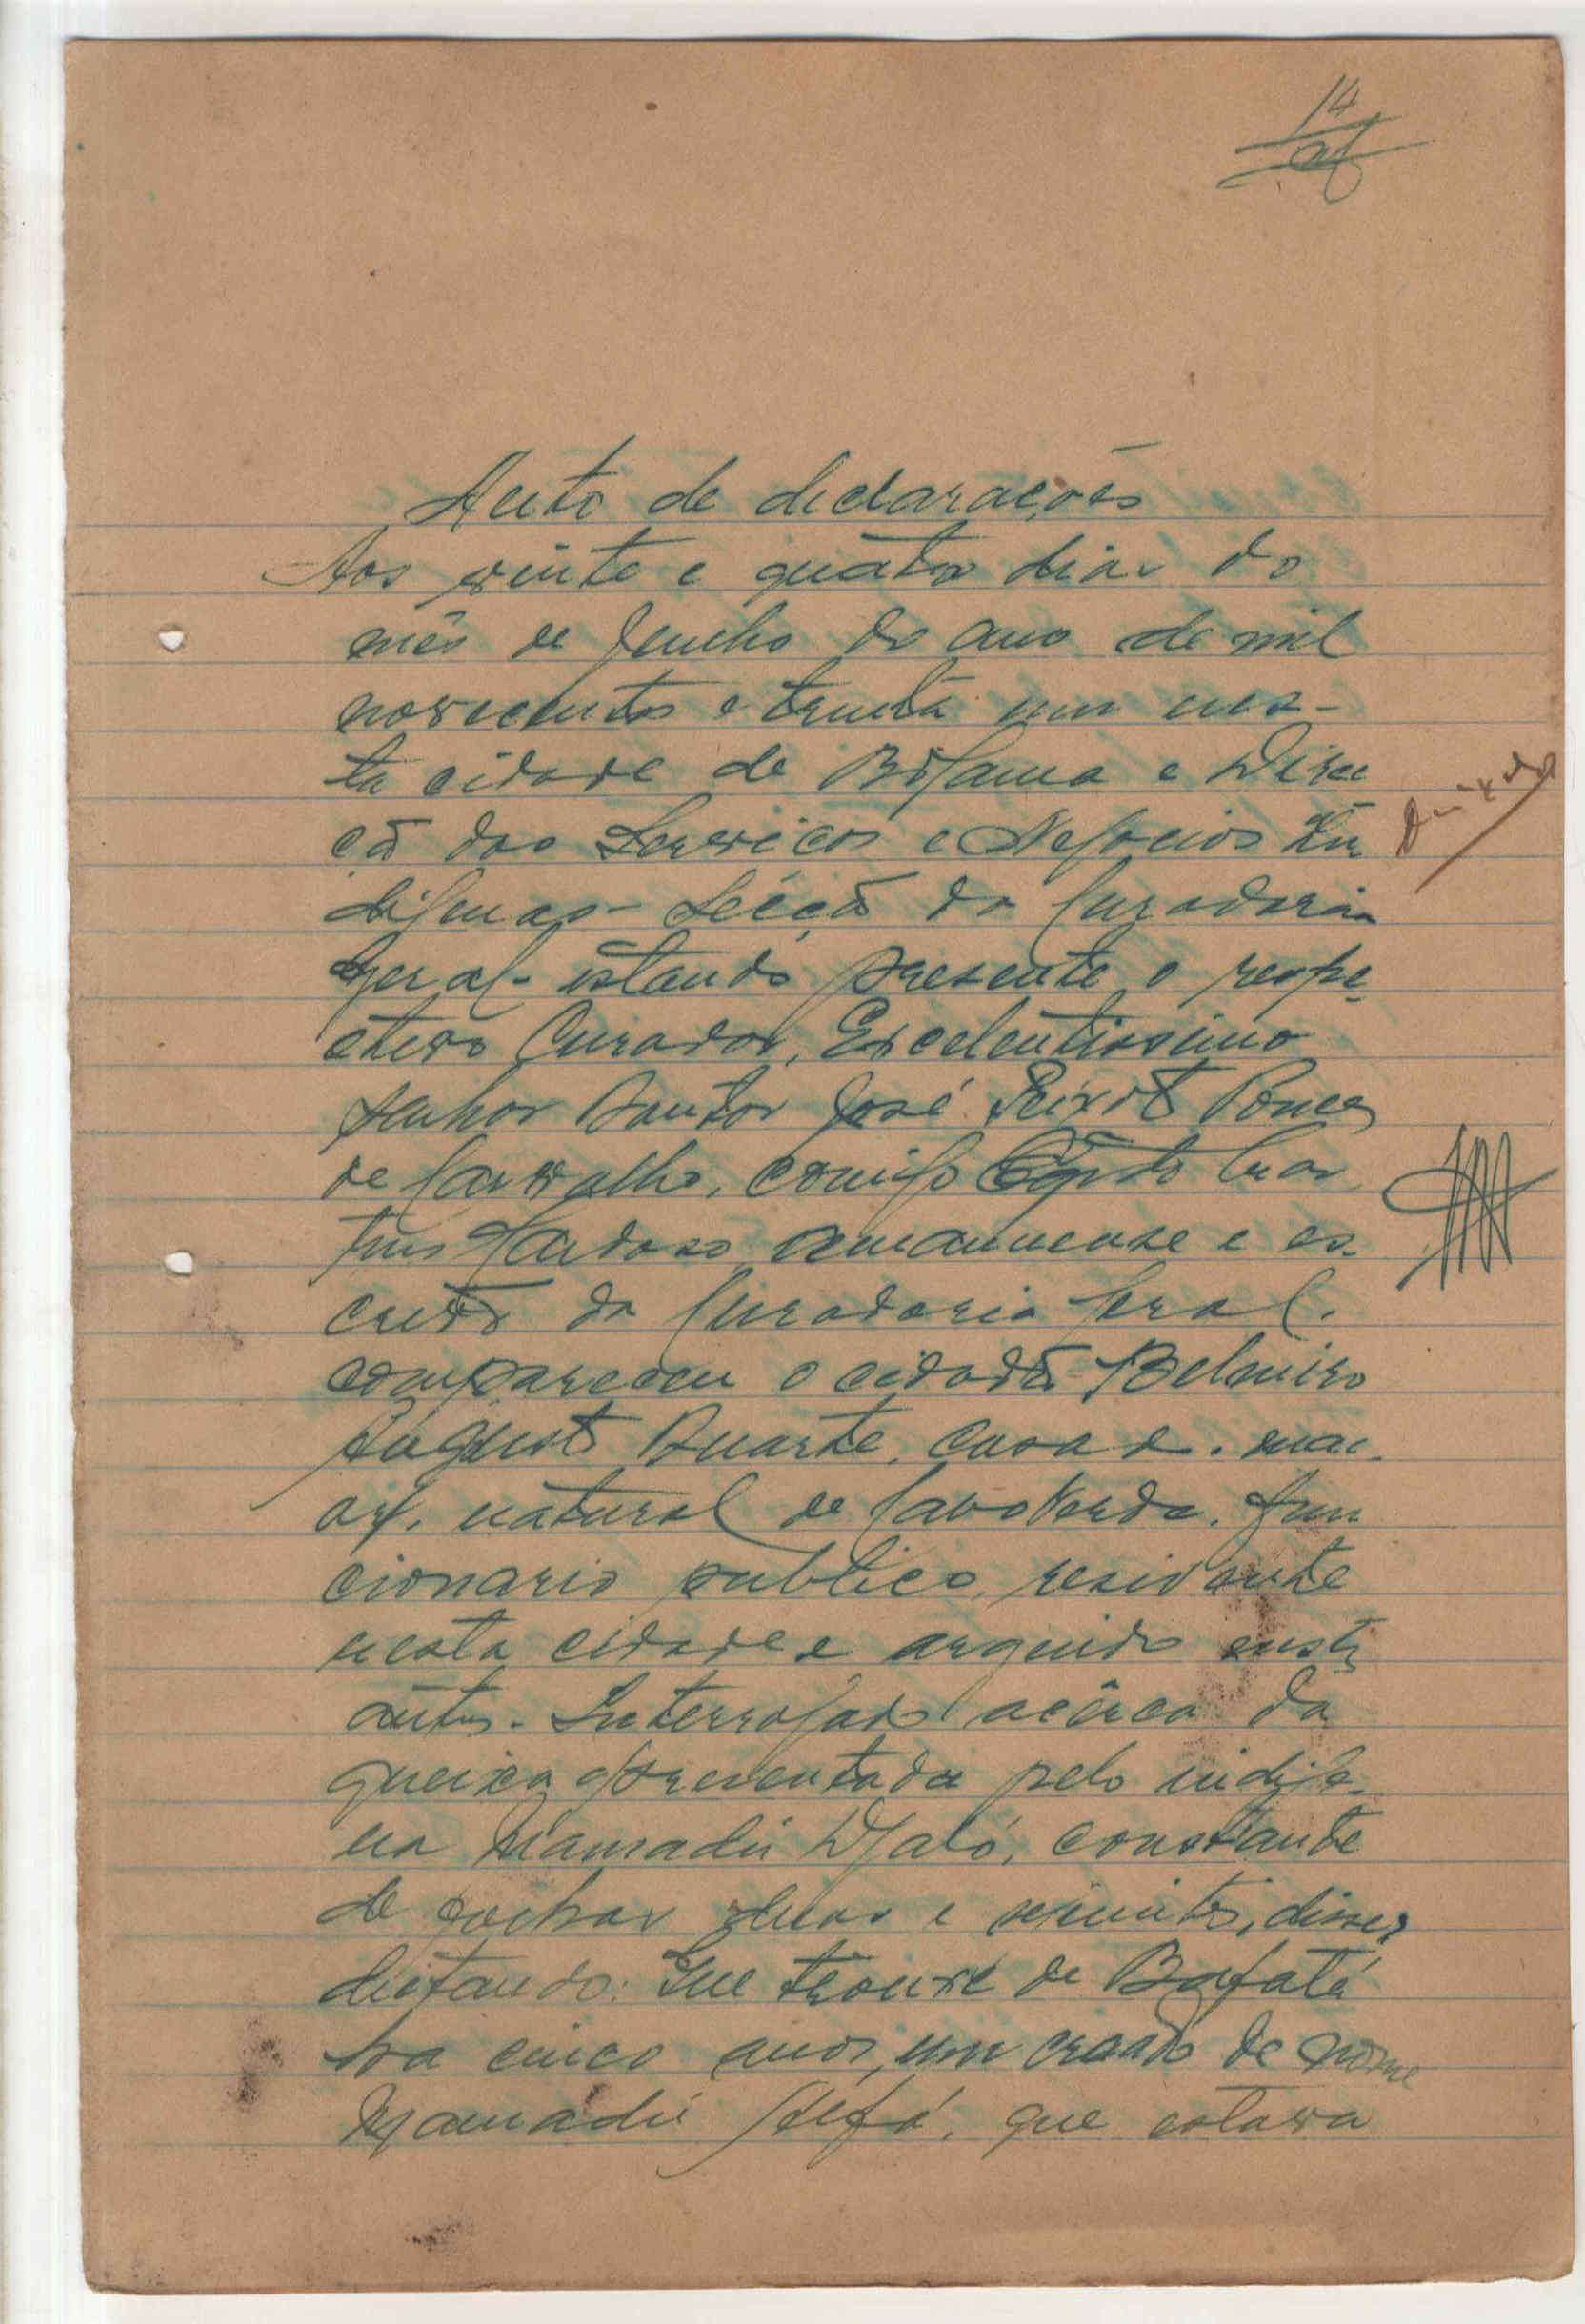 14
Auto de declarações
Aos vinte e quatro dias do
mês de Junho do ano de mil
novecentos e trinta um nes-
ta cidade de Bolama e Direc
ção dos Serviços e Negocios In
digenas - Secção da Curadoria
Geral - estando presente o respe-
ctivo Curador, Excelentissimo
Senhor Doutor José Peixoto Ponces
de Carvalho, comigo Mar
tins Cardoso amanuense e es-
crivão da Curadoria Geral,
compareceu o cidadão Belmiro
Augusto Duarte, casado, mai-
or, natural de Cabo Verde, fun
cionario publico, residente
nesta cidade e arguido nestes
autos. Interrogado acêrca da
queixa apresentada pelo indige-
na Mamadú Djaló, constante
de folhas duas e seguintes, disse,
dictando: Que trouxe de Bafatá
ha cinco anos, um creado de nome
Mamadú, que estava